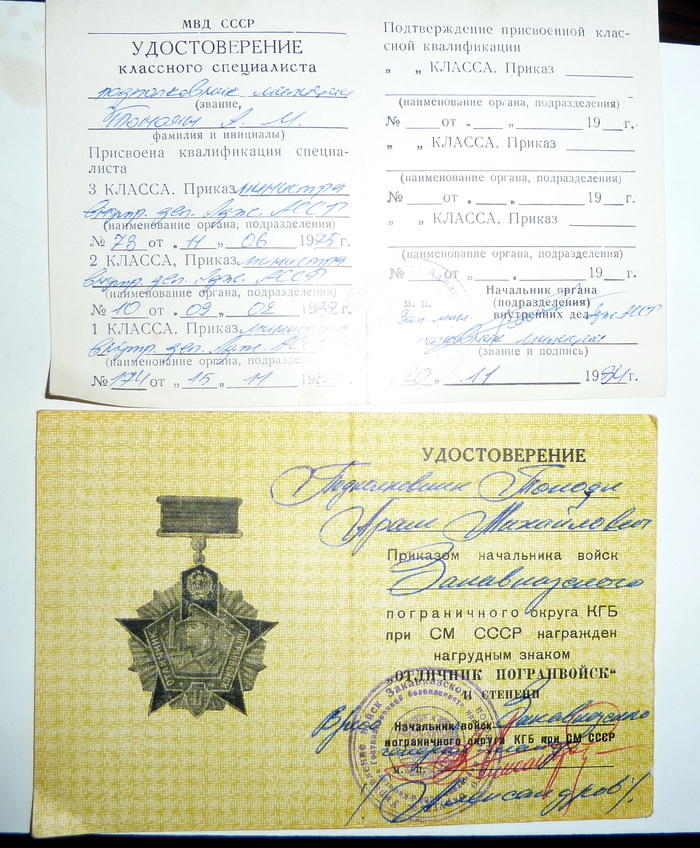 МВД СССР
УДОСТОВЕРЕНИЕ
классного специалиста
подполковник милиции
(звание,
А. М.
фамилия и инициалы)
Присвоена квалификация специа-
листа
3 КЛАССА. Приказ министра
внутр. дел. Адж. АССР
(наименование органа, подразделения)
№ 73 от „ 11 „ 06 1975 г.
2 КЛАССА, Приказ министра
внутр. дел. Адж. АССР
(наименование органа, подразделения)
№ 10 от „ 09 „ 02 19 г.
1 КЛАССА. Приказ министра
внутр. дел. Адж. АССР
(наименование органа, подраздел
№ 174 от „ 15 „ 11 19
Подтверждение присвоенной клас-
сной квалификации
„ „ КЛАССА. Приказ
(наименование органа, подразделения)
№ от „ „ 19 г.
„ „ КЛАССА. Приказ
(наименование органа, подразделения)
№ от „ „ 19 г.
„ „ КЛАССА. Приказ
(наименование органа, подразделения)
№ от „ „ 19 г.
Начальник органа
м. п. (подразделения)
Зам. мин. внутренних дел Адж. АССР
полковник милиции
(звание и подпись)
„ 20 „ 11 1984 г.
УДОСТОВЕРЕНИЕ
Подполковник
Арам Михайлович
Приказом начальника войск
Закавказского
пограничного округа КГБ
при СМ СССР награжден
нагрудным знаком
„ОТЛИЧНИК ПОГРАНВОЙСК“
II СТЕПЕНИ
Врио Начальник войск Закавказского
пограничного округа КГБ при СМ СССР
генерал-майор
м. п.
/Александров/